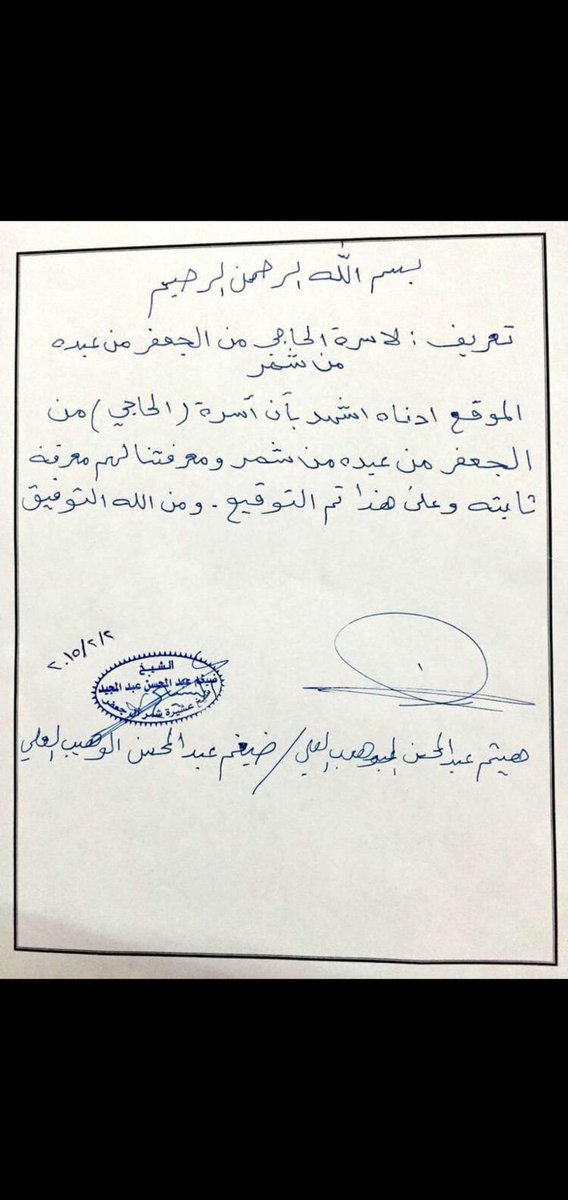 بسم الله الرحمن الرحيم
تعريف : لاسرة الحاجي من الجعفر من عبده
من شمر
الموقع ادناه اشهد بأن أسرة (الحاجي) من
الجعفر من عبده من شمر ومعرفتنا لهم معرفة
ثابته وعلى هذا تم التوقيع . ومن الله التوفيق
٢٠١٥/٢/٢
الشيخ
ضيغم عبد المحسن عبد المجيد
عشيرة شمر الجعفر
هيثم عبد المحسن العلي / ضيغم عبد المحسن الوهيب العلي